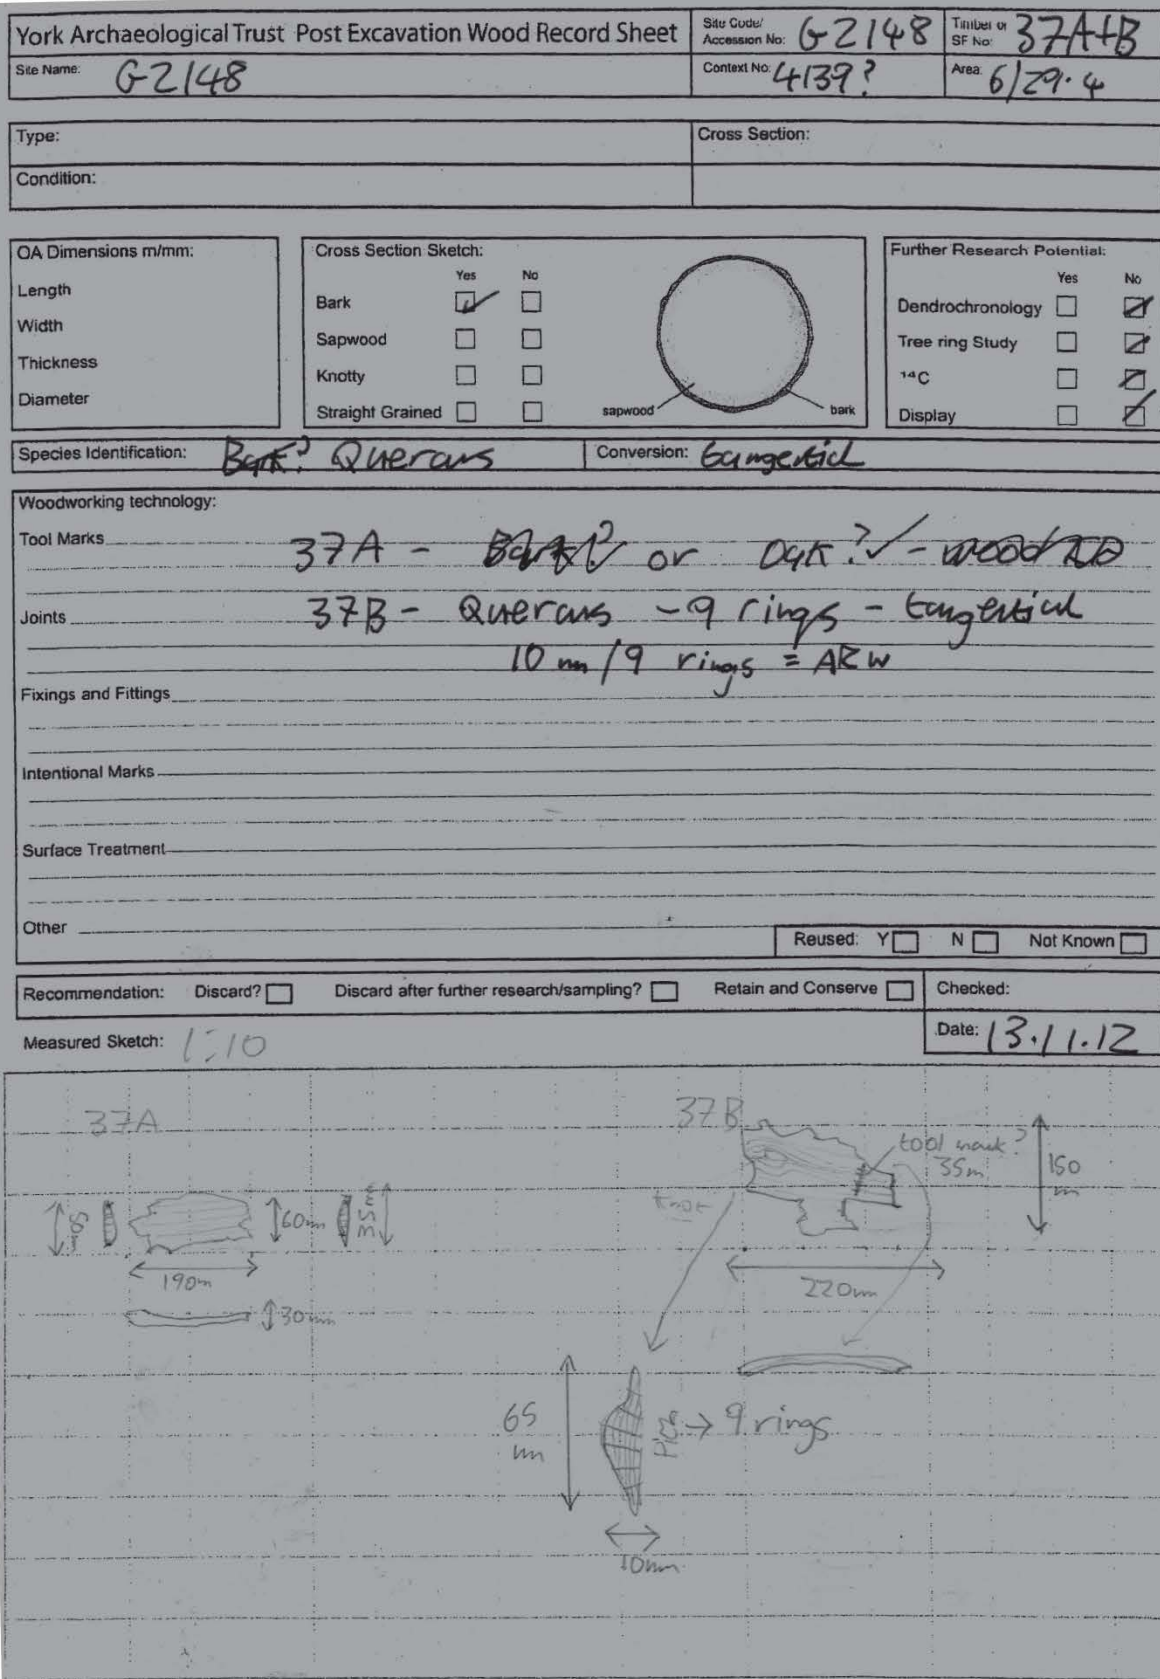 York Archaeological Trust Post Excavation Wood Record Sheet
Site Code/ Accession No: G2148
Timber or SF No: 37A+B
Site Name: G2148
Context No: 4139?
Area: 6/29.4
Type:
Cross Section:
Condition:
OA Dimensions m/mm:
Length
Width
Thickness
Diameter
Cross Section Sketch:
Yes No
Bark
Sapwood
Knotty
Straight Grained
sapwood
bark
Further Research Potential:
Yes No
Dendrochronology
Tree ring Study
14C
Display
Species Identification: Bark? Quercus
Conversion: tangential
Woodworking technology:
Tool Marks 37A - Bark? or Oak? ✓ - wood
Joints 37B - Quercus - 9 rings - tangential
10 mm/9 rings = ARW
Fixings and Fittings
Intentional Marks
Surface Treatment
Other
Reused: Y N Not Known
Recommendation: Discard? Discard after further research/sampling? Retain and Conserve
Checked:
Measured Sketch: 1:10
Date: 13.11.12
37A
37B
tool mark?
35m
150
m
50m
60mm
35mm
knot
190m
220mm
30mm
65
mm
→ 9 rings
10mm